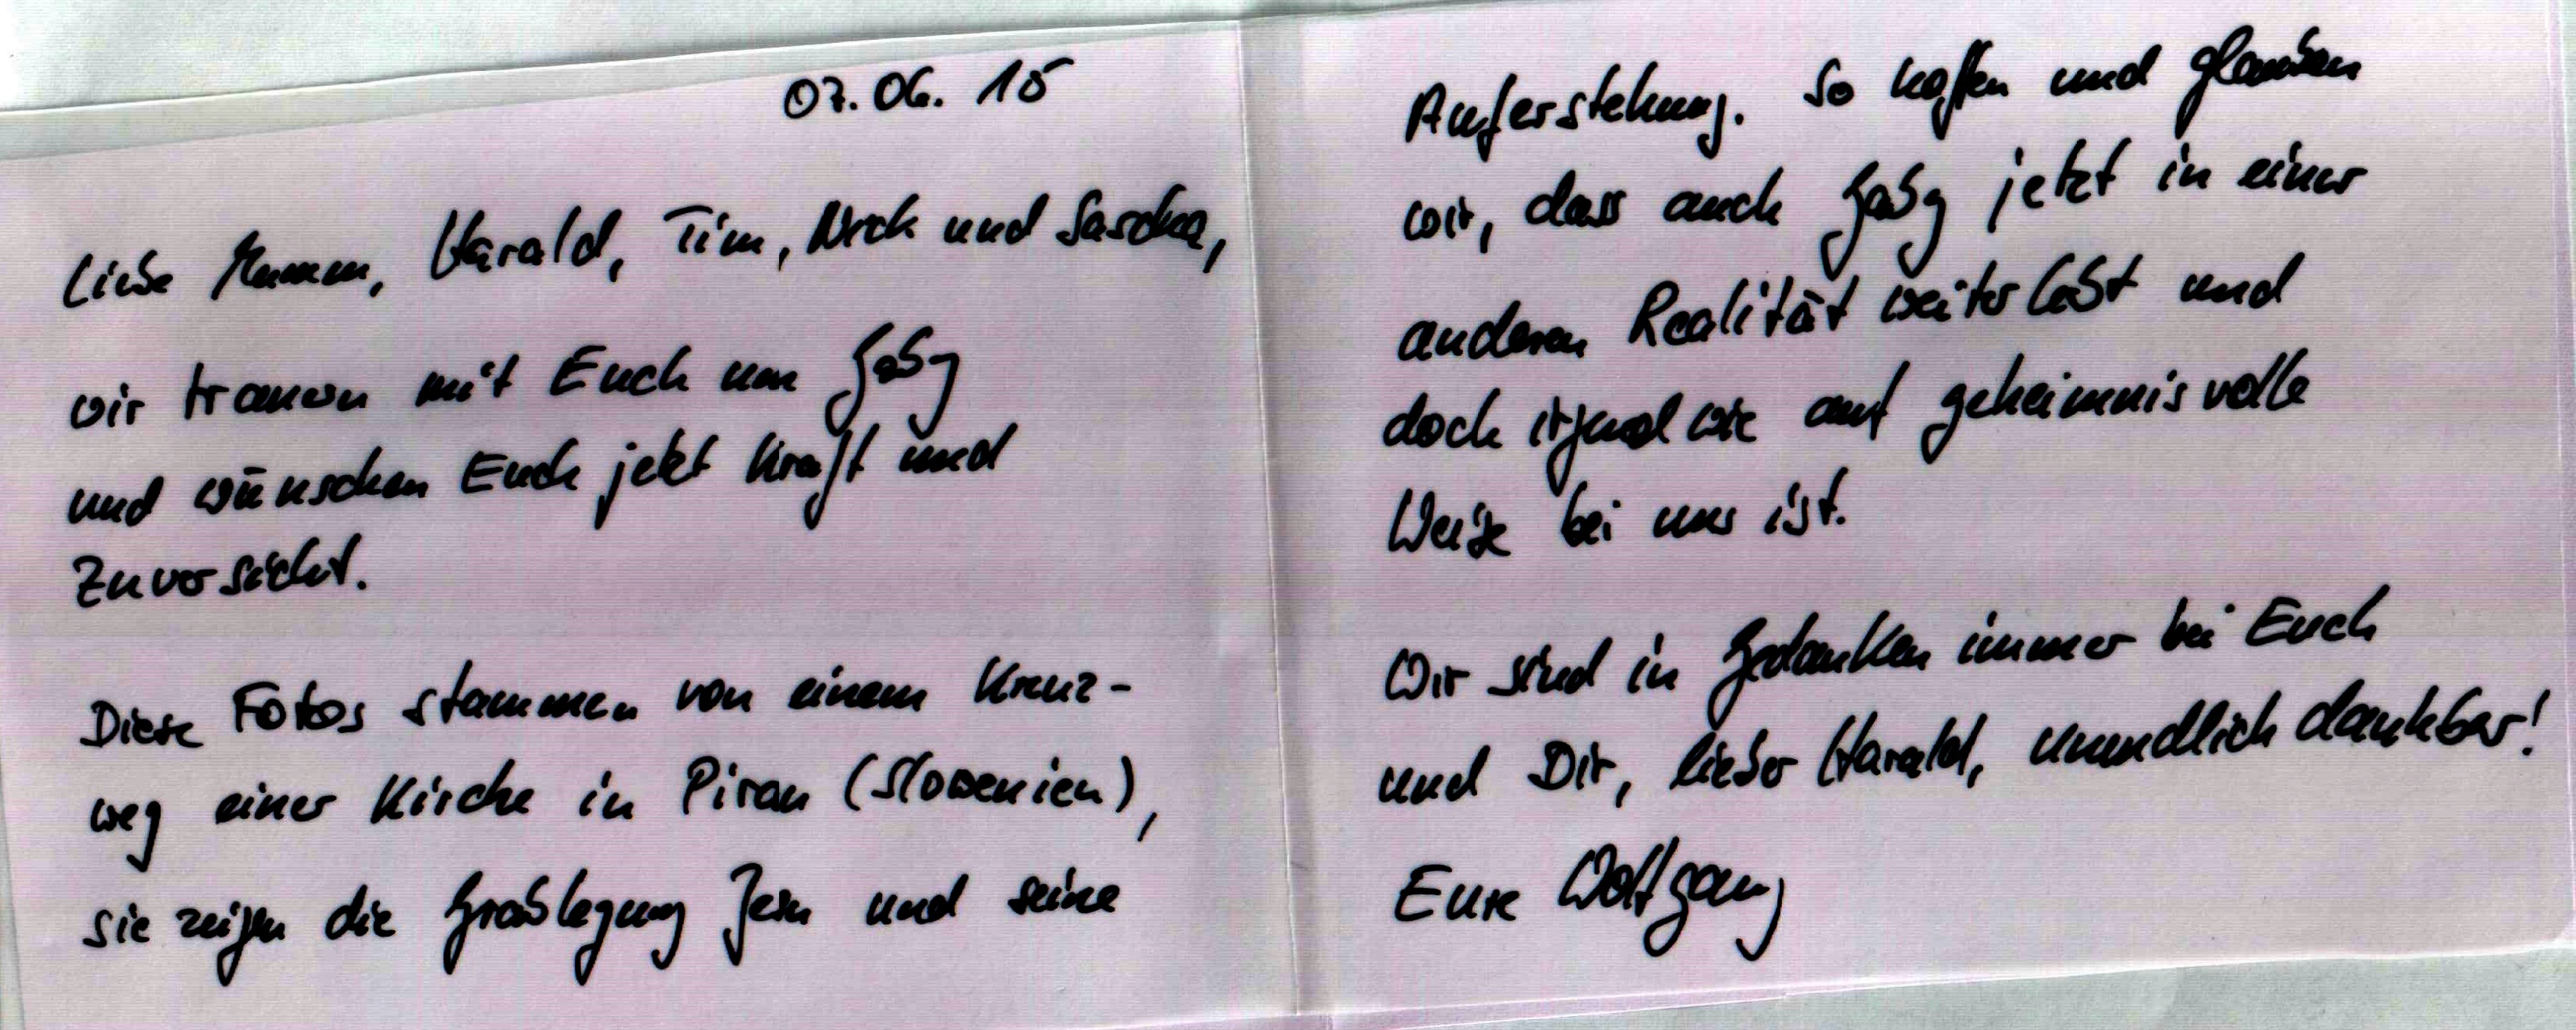 07.06.15
Liebe Mamam, Harald, Tim, Nick und Sascha,
wir trauern mit Euch um Gaby
und wünschen Euch jetzt Kraft und
Zuversicht.
Diese Fotos stammen von einem Kreuz-
weg einer Kirche in Piran (Slowenien),
sie zeigen die Grablegung Jesu und seine
Auferstehung. So hoffen und glauben
wir, dass auch Gaby jetzt in einer
anderen Realität weiterlebt und
doch irgendwie auf geheimnisvolle
Weise bei uns ist.
Wir sind in Gedanken immer bei Euch
und Dir, lieber Harald, unendlich dankbar!
Eure Wolfgang